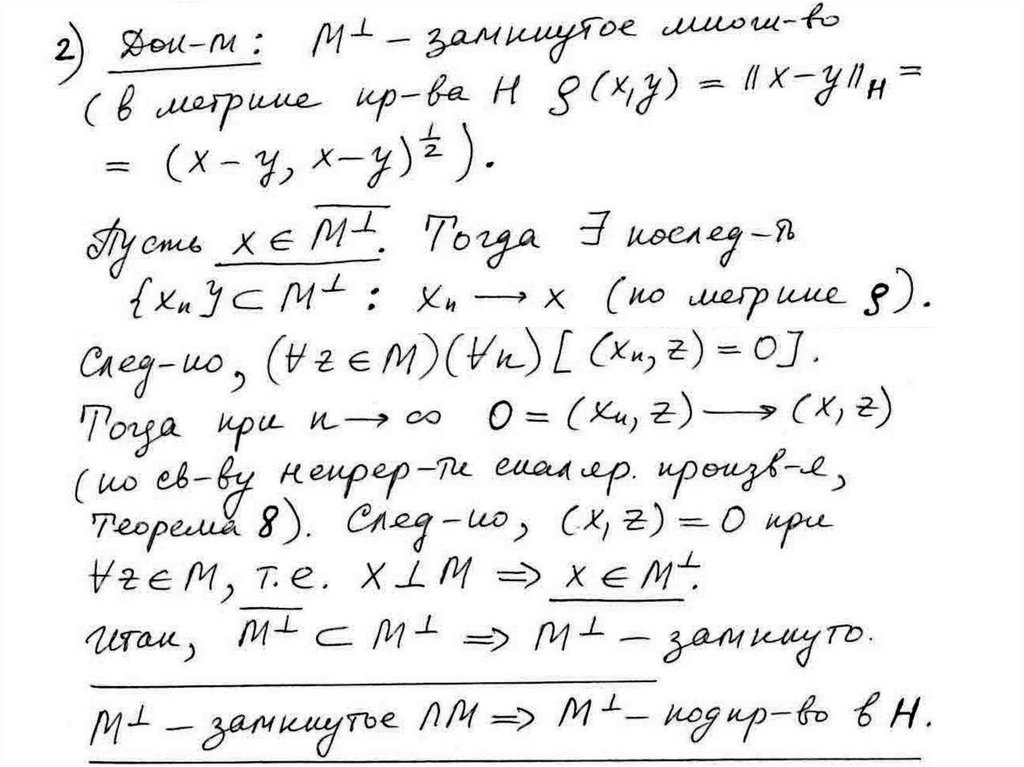 2) Док-м: M⊥ – замкнутое множ-во
(в метрике пр-ва H ρ(x,y) = ‖x–y‖H =
= (x–y, x–y)^½).
Пусть x ∈ \overline{M⊥}. Тогда ∃ послед-ть
{xn} ⊂ M⊥ : xn → x (по метрике ρ).
След-но, (∀z ∈ M)(∀n)[(xn, z) = 0].
Тогда при n → ∞ 0 = (xn, z) → (x, z)
(по св-ву непрер-ти скаляр. произв-я,
Теорема 8). След-но, (x, z) = 0 при
∀z ∈ M, т.е. x ⊥ M ⇒ x ∈ M⊥.
Итак, \overline{M⊥} ⊂ M⊥ ⇒ M⊥ – замкнуто.
M⊥ – замкнутое ЛМ ⇒ M⊥ – подпр-во в H.